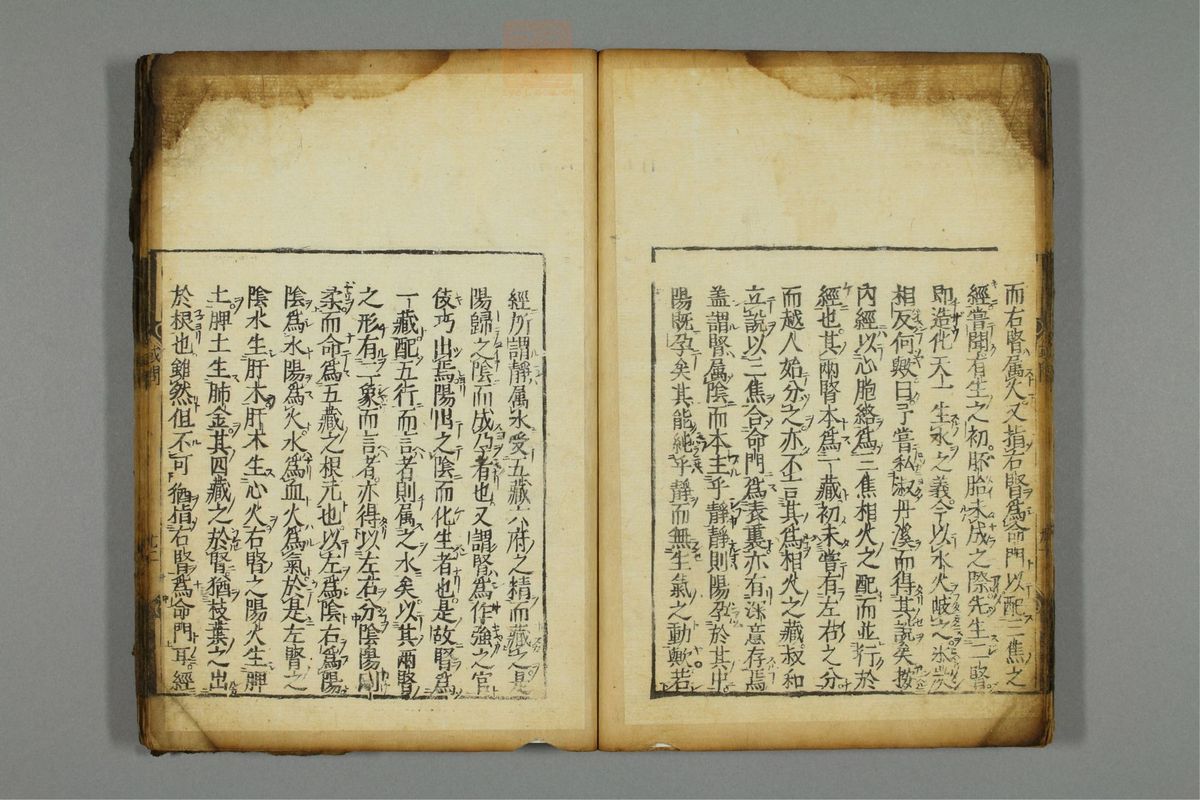 而右腎属火又指右腎為命門以配三焦之
經嘗聞有生之初胚胎未成之際先生二腎
即造化天一生水之義今以水火岐之
相反何與曰予嘗私淑丹溪而得其說矣按
內經以心胞絡為三焦相火之配而並行於
經也其兩腎本為一藏初未嘗有左右之分
而越人始分之亦不言其為相火之藏叔和
立說以三焦合命門為表裏亦有深意存焉
盖謂腎属陰而本主乎靜靜則陽孕於其中
陽既孕矣其能純乎靜而無生氣之動歟若
經所謂靜属水受五藏六府之精而藏之是
陽歸之陰而成乃者也又謂腎為作強之官
伎巧出焉陽出之陰而化生者也是故腎為
一藏配五行而言者則属之水矣以其兩腎
之形有二象而言者亦得以左右分陰陽剛
柔而命為五藏之根元也以左為陰右為陽
陰為水陽為火水為血火為氣於是左腎之
陰水生肝木肝木生心火右腎之陽火生脾
土脾土生肺金其四藏之於腎猶枝葉之出
於根也雖然但不可猶指右腎為命門耳經
或問